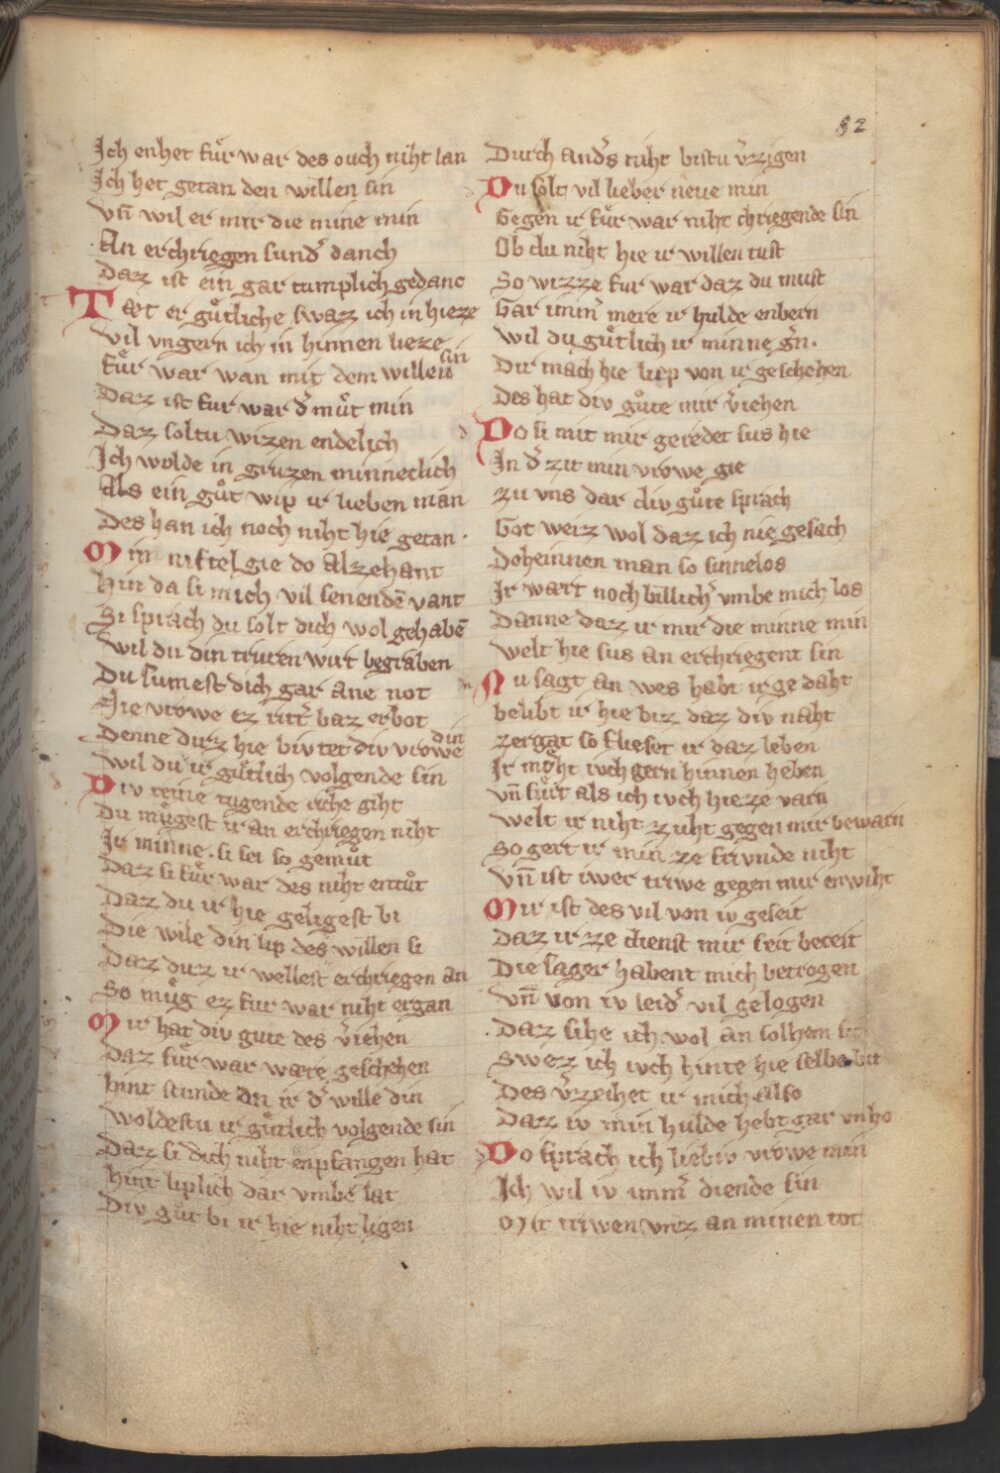 82
Ich enhet fuͤr war des ouch niht lan
Ich het getan den willen sin
Vn̄ wil er mir die mine min
An erchriegen sund᷑ danch
Daz ist ein gar tumplich gedanc
Tæt er guͤtliche swaz ich in hieze
Vil vngern ich in hinnen lieze
Fuͤr war wan mit dem willen sin
Daz ist fur war d᷑ muͦt min
Daz soltu wizen endelich
Ich wolde in gruzen minneclich
Als ein guͦt wip ir lieben man
Des han ich noch niht hie getan.
Min niftel gie do alzehant
Hin da si mich vil senendē vant
Si sprach du solt dich wol gehabē
Wil du din truren wirt begraben
Du sumest dich gar ane not
Nie vrowe ez ritt᷑ baz erbot
Denne durz hie bivtet div vrowe din
Wil du ir guͤtlich volgende sin
Div reine tugende riche giht
Du muͤgest ir an erchriegen niht
Ir minne. si sei so gemuͦt
Daz si fuͤr war des niht entuͦt
Daz du ir hie geligest bi
Die wile din lip des willen si
Daz durz ir wellest erchriegen an
So muͤg ez fur war niht ergan
Mir hat div gute des v᷑iehen
Daz fuͤr war wære geschehen
Hint stunde an ir d᷑ wille din
Woldestu ir guͤtlich volgende sin
Daz si dich niht enpfangen hat
Hint liplich dar vmbe lat
Div guͦt bi ir hie niht ligen
Durch and᷑s niht bistu v᷑zigen
Du solt vil lieber neve min
Gegen ir fuͤr war niht chriegende sin
Ob du niht hie ir willen tust
So wizze fur war daz du must
Gar imm᷑ mere ir hulde enbern
Wil du guͤtlich ir minne g᷑n.
Dir mach hie liep von ir geschehen
Des hat div guͦte mir v᷑iehen
Do si mit mir geredet sus hie
In d᷑ zit min vrowe gie
Zu vns dar div guͦte sprach
Got weiz wol daz ich nie gesach
Doheinnen man so sinnelos
Ir wært noch billich᷑ vmbe mich los
Danne daz ir mir die minne min
Welt hie sus an erchriegent sin
Nu sagt an wes habt ir gedaht
Belibt ir hie biz daz div naht
Zergat so flieset ir daz leben
Ir moͤht ivch gern hinnen heben
Vn̄ fuͤrt als ich ivch hieze varn
Welt ir niht zuht gegen mir bewarn
So gert ir min ze frivnde niht
Vn̄ ist iwer triwe gegen mir enwiht
Mir ist des vil von iv geseit
Daz ir ze dienst mir seit bereit
Die sager habent mich betrogen
Vn̄ von iv leid᷑ vil gelogen
Daz sihe ich wol an solhem sit
Swezz ich ivch hinte hie selbe bit
Des v᷑zeihet ir mich also
Daz iv min hulde hebt gar vnho
Do sprach ich liebiv vrowe min
Ich wil iv imm᷑ diende sin
Mit triwen vnz an minen tot